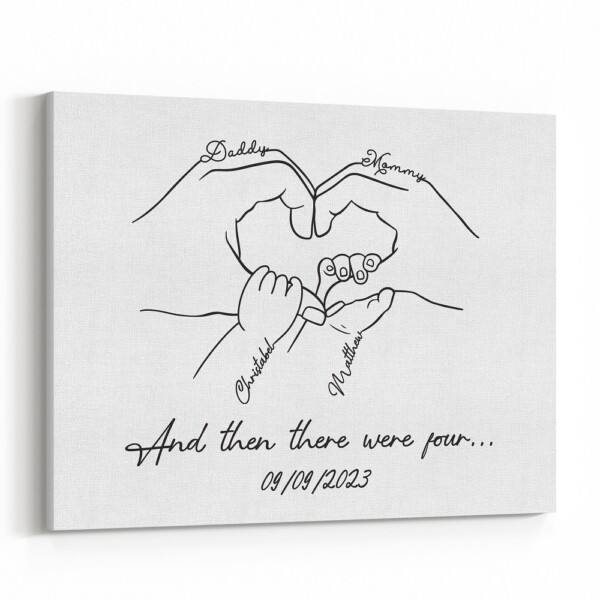 Daddy
Mommy
Christabel
Matthew
And then there were four...
09/09/2023